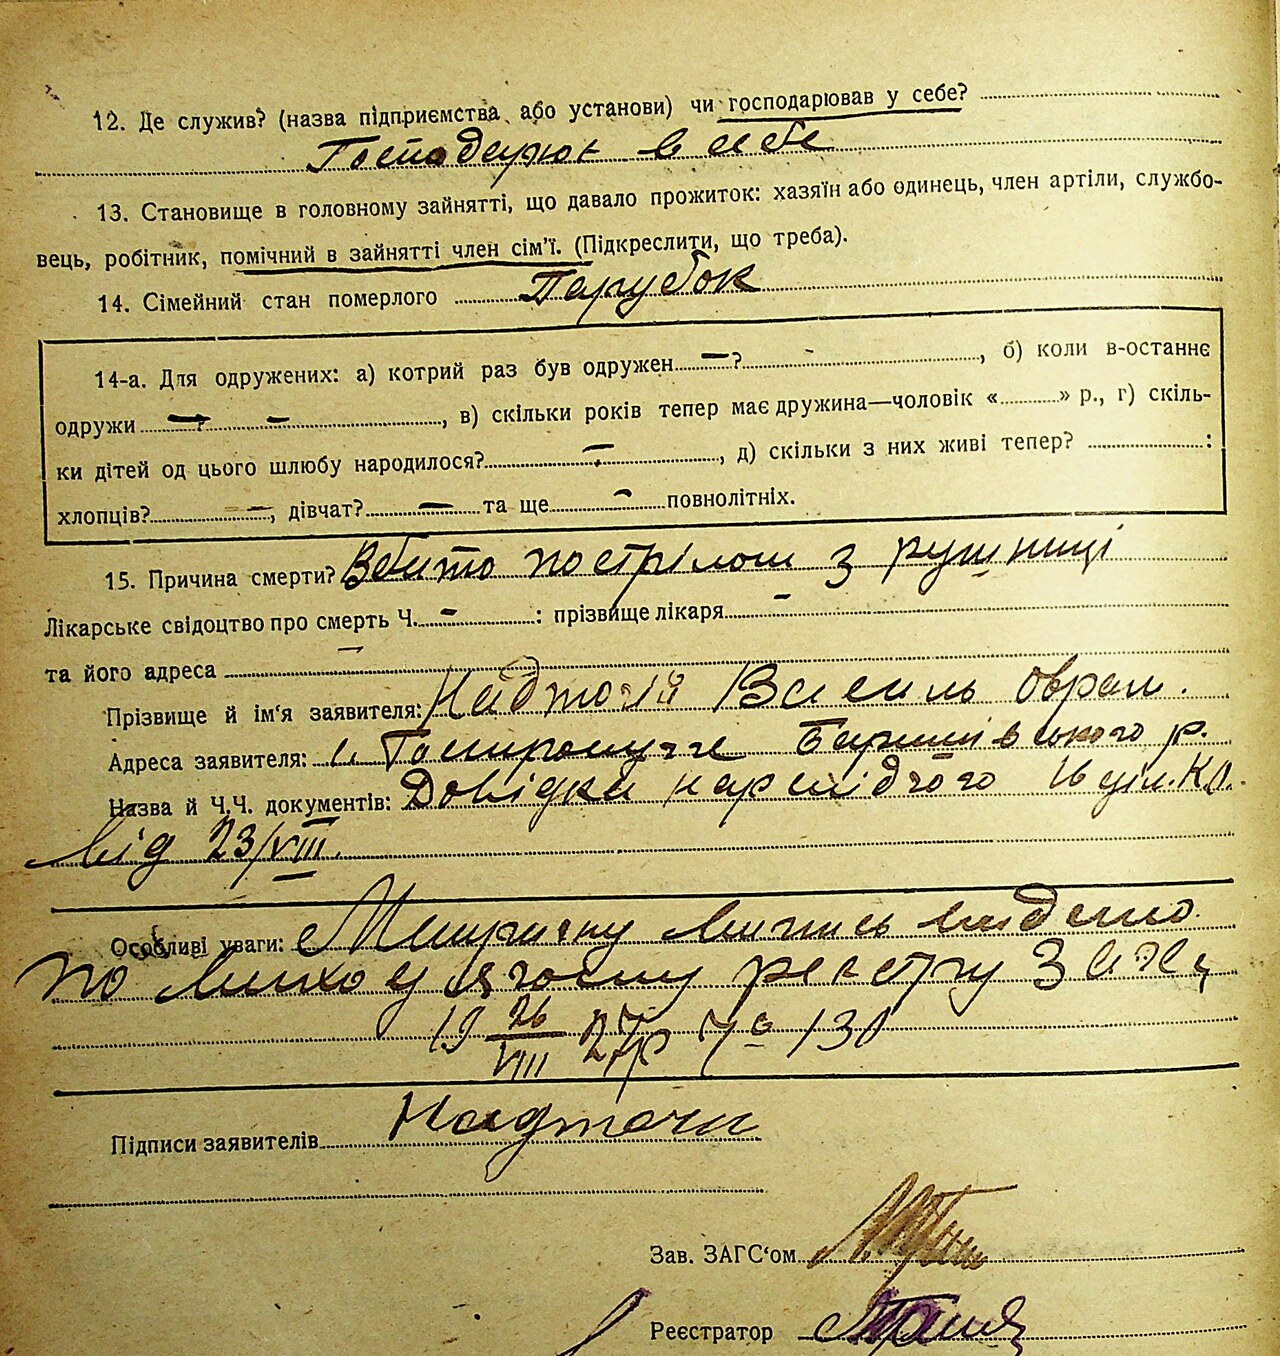 12. Де служив? (назва підприємства, або установи) чи господарював у себе?
Господарює в себе
13. Становище в головному зайнятті, що давало прожиток: хазяїн або одинець, член артіли, службо-
вець, робітник, помічний в зайнятті член сім'ї. (Підкреслити, що треба).
14. Сімейний стан померлого Парубок
14-а. Для одружених: а) котрий раз був одружен — ?, б) коли в-останнє
одружи — ? —, в) скільки років тепер має дружина—чоловік « » р., г) скіль-
ки дітей од цього шлюбу народилося? —, д) скільки з них живі тепер? :
хлопців? —, дівчат? — та ще — повнолітніх.
15. Причина смерти? Вбито пострілом з рушниці
Лікарське свідоцтво про смерть Ч. — : прізвище лікаря —
та його адреса —
Прізвище й ім'я заявителя: Надточій Василь Оврам.
Адреса заявителя: Баришівського р.
Назва й Ч.Ч. документів: Довідка нарслідчого
від 23/VIII.
Особливі уваги: Метричну випись видано
по виходячому реєстру
19 26/VIII 27р Ч 130
Підписи заявителів Надточи
Зав. ЗАГС'ом
Реєстратор